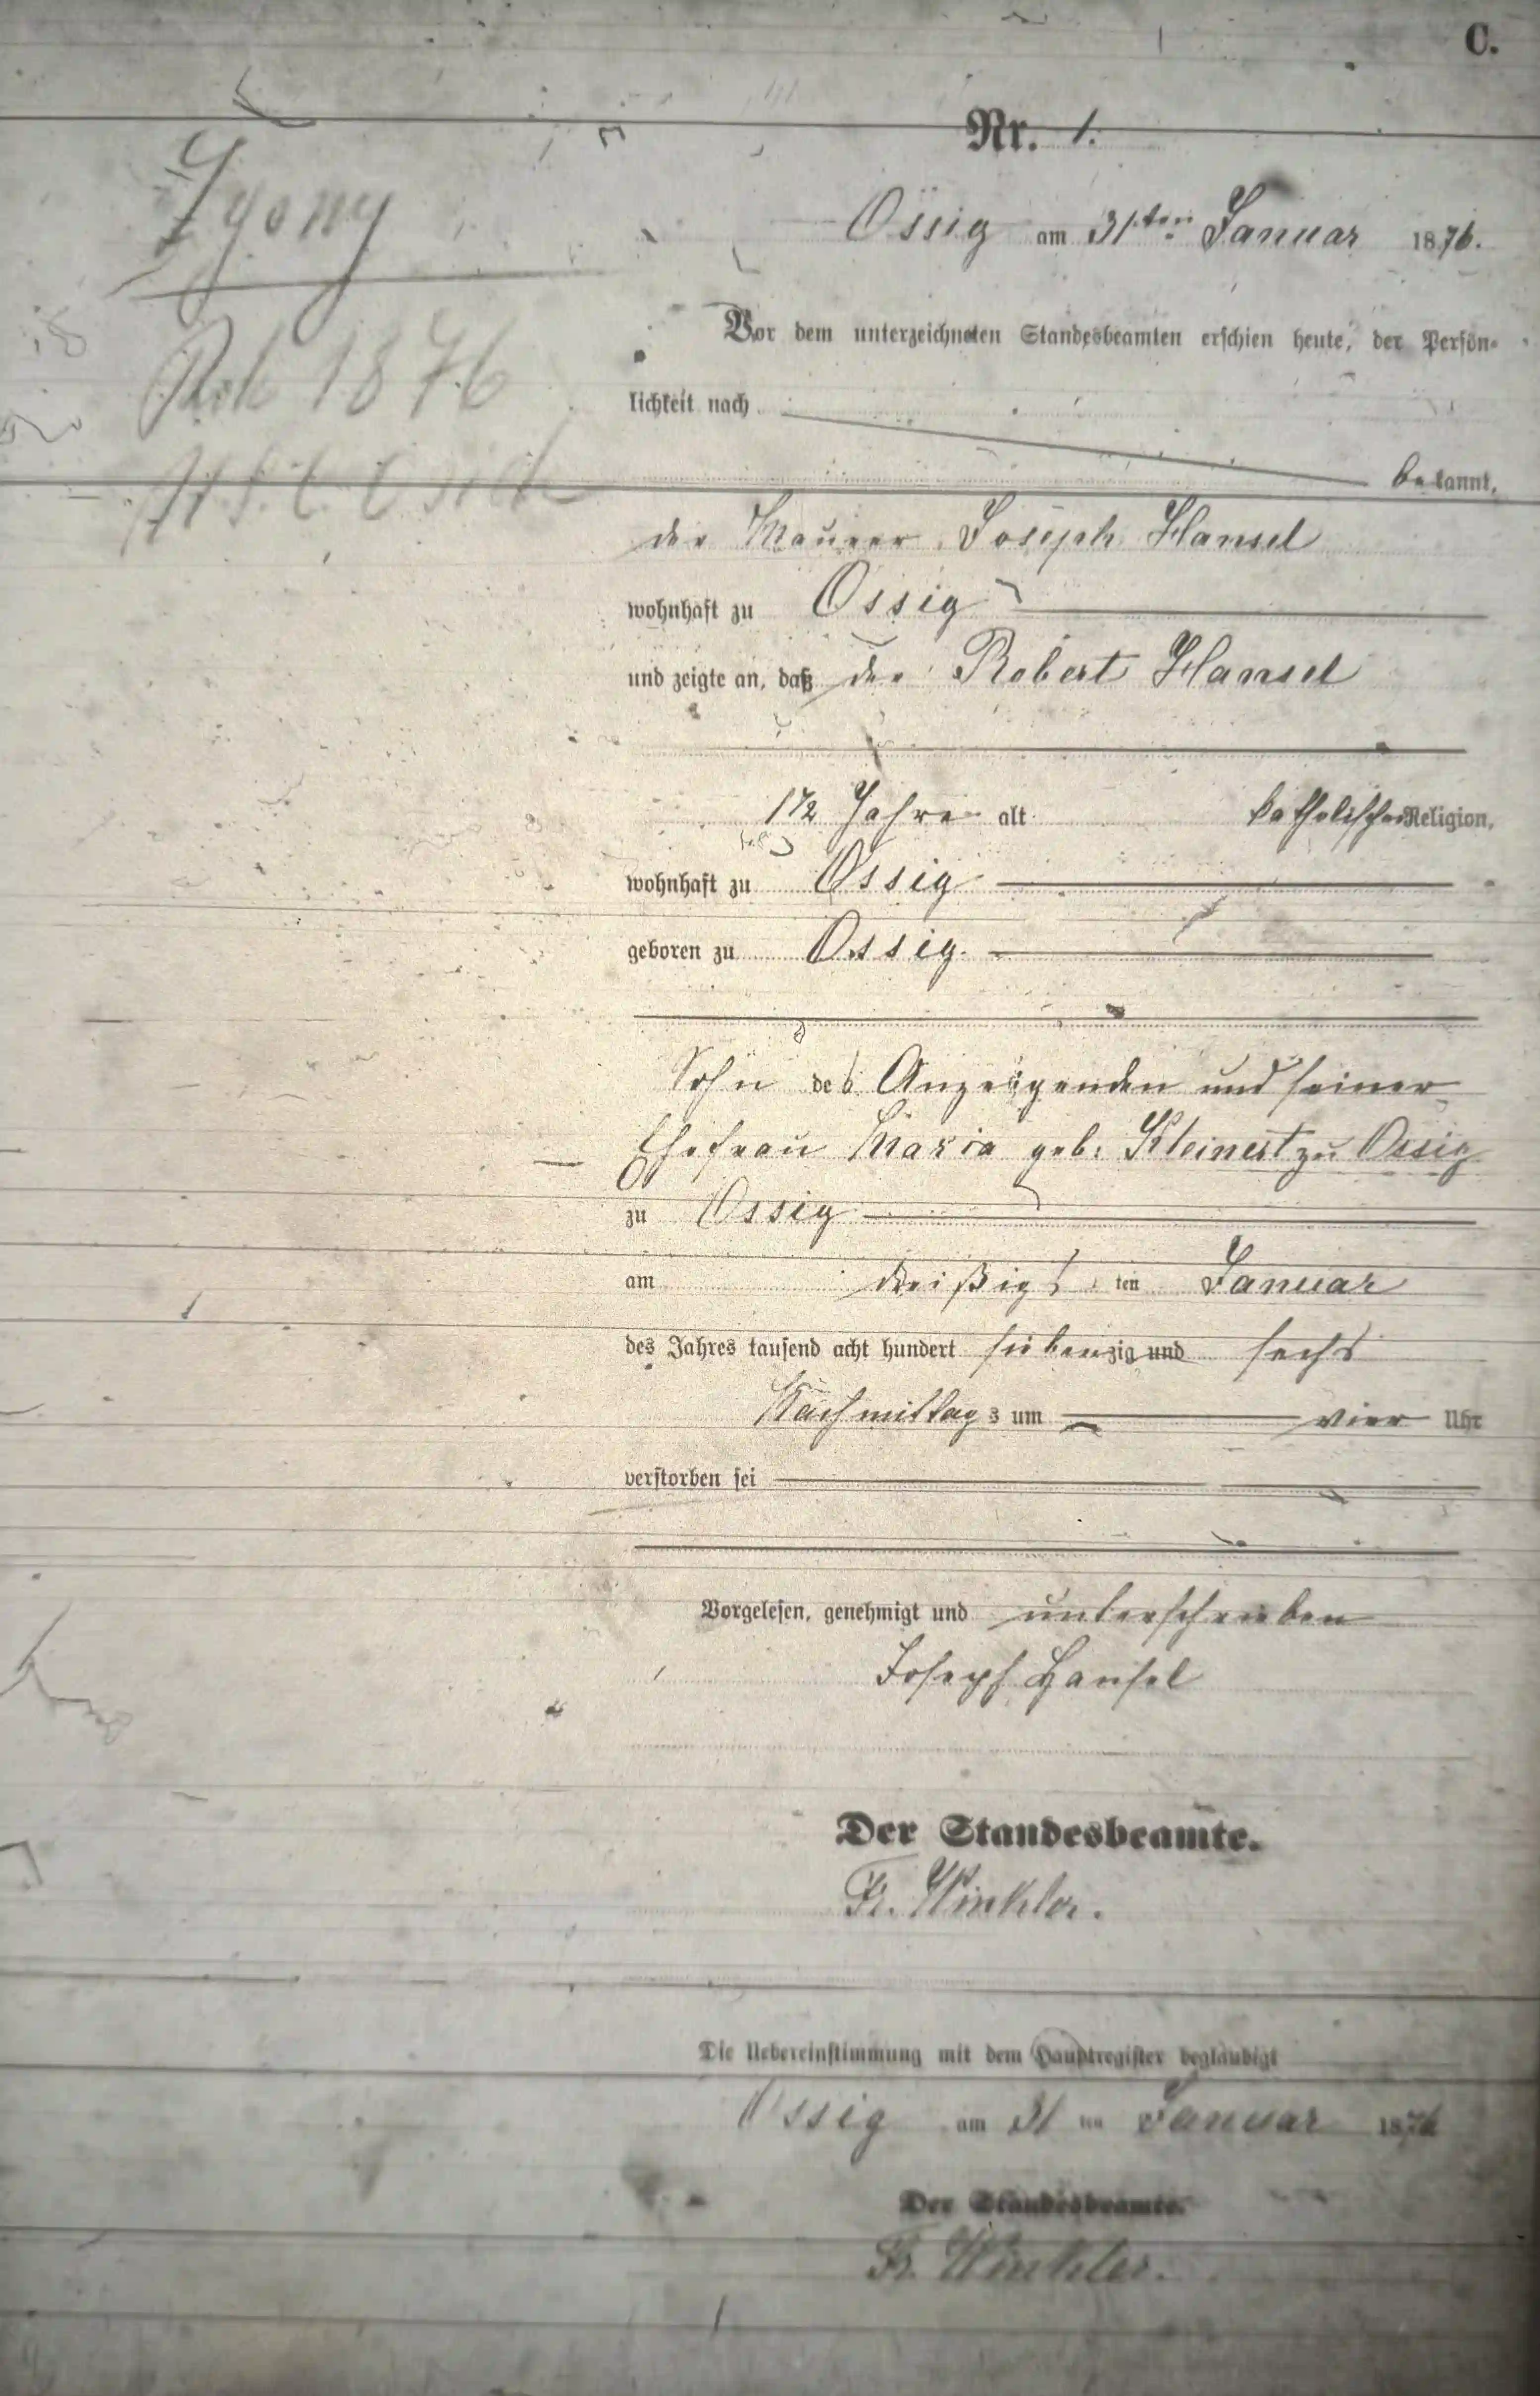 C.
Nr. 1.
Zgony
Rok 1876
Ossig am 31ten Januar 1876.
Vor dem unterzeichneten Standesbeamten erschien heute, der Persön-
lichkeit nach
bekannt,
der Maurer Joseph Hansel
wohnhaft zu Ossig
und zeigte an, daß der Robert Hansel
1 1/2 Jahre alt katholischer Religion,
wohnhaft zu Ossig
geboren zu Ossig.
Sohn des Anzeigenden und seiner
Ehefrau Maria geb: Kleinert zu Ossig
zu Ossig
am dreißigsten Januar
des Jahres tausend acht hundert siebenzig und sechs
Nachmittags um vier Uhr
verstorben sei
Vorgelesen, genehmigt und unterschrieben
Joseph Hansel
Der Standesbeamte.
Fr. Winkler.
Die Uebereinstimmung mit dem Hauptregister beglaubigt
Ossig am 31 ten Januar 1876
Der Standesbeamte.
Fr. Winkler.